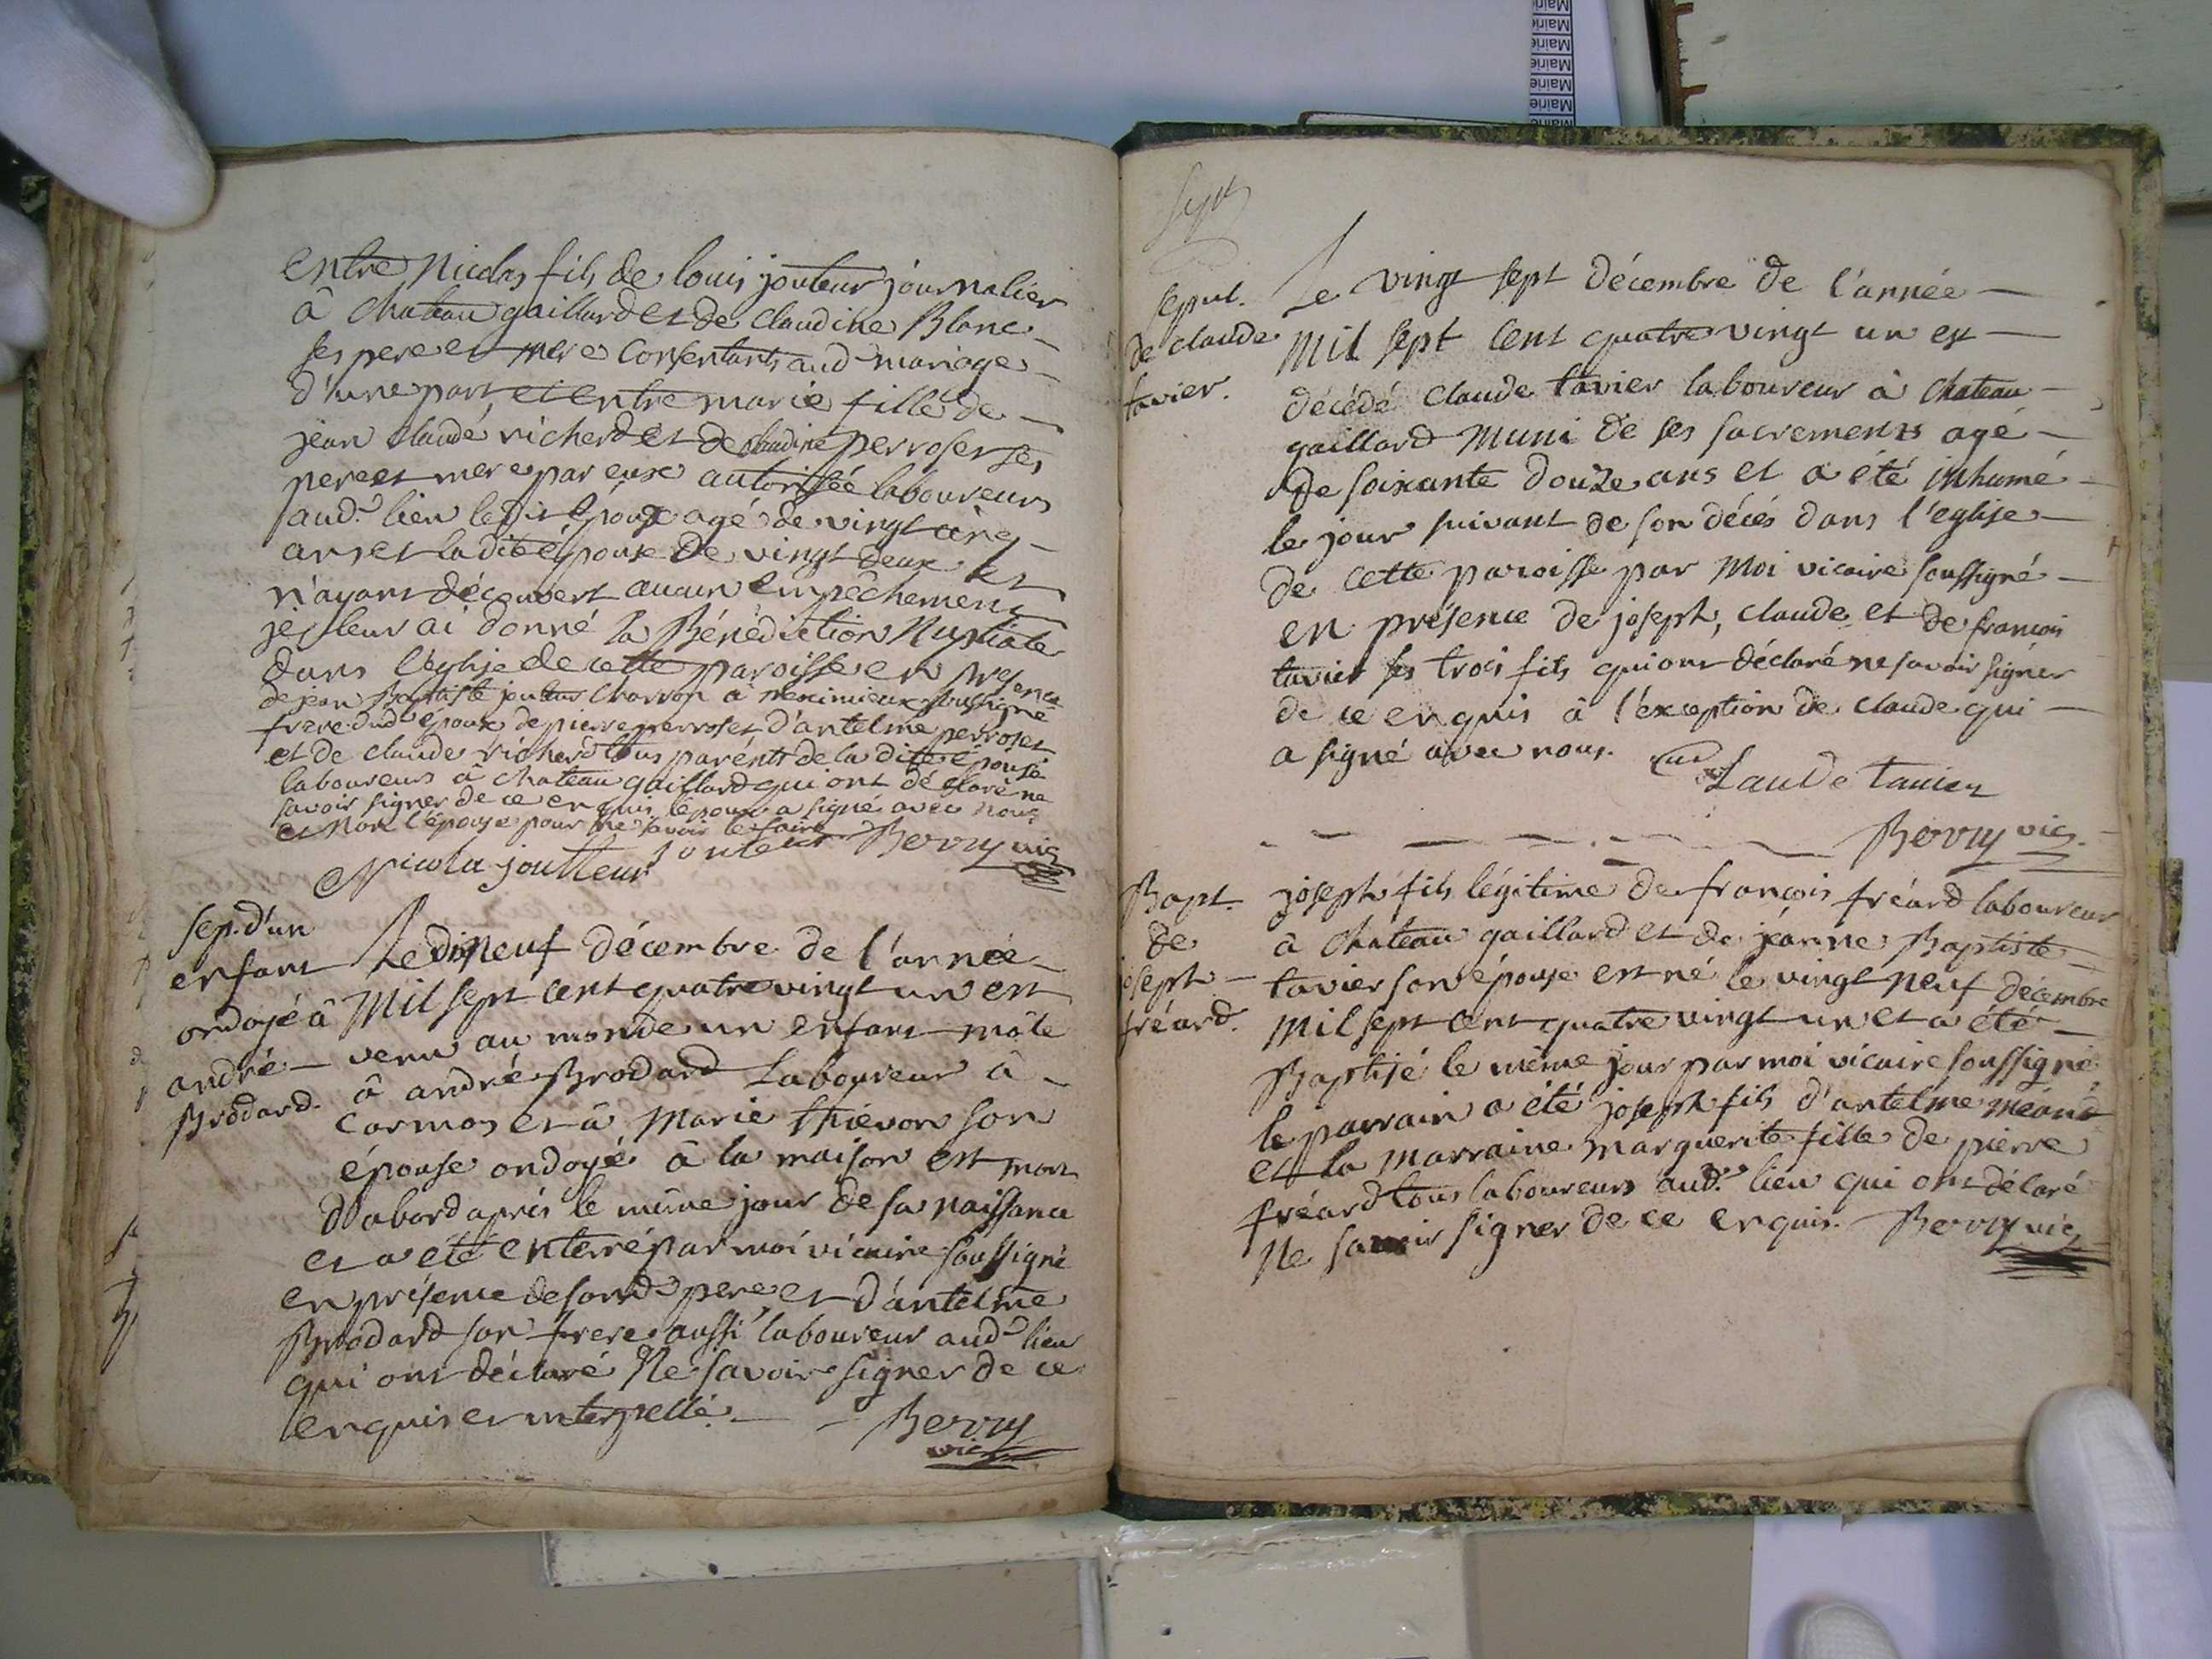 entre Nicolas fils de louis jouteur journalier
â Chateau gaillard et de claudine Blanc
ses pere et mere Consentants aud. mariage
d'une part et entre marie fille de
jean claude richerd et de claudine perroset ses
pere et mere par eux autorisée laboureurs
aud. lieu ledit époux agé de vingt cinq
ans et la dite épouse de vingt deux et
n'ayant découvert aucun empêchement
je leur ai donné la Bénédiction Nuptiale
dans l'eglise de cette paroisse en presence
de jean Baptiste jouteur Charron à meximieux soussigné
frere dud. époux de pierre perroset d'antelme perroset
et de claude richerd tous parents de la dite épouse
laboureurs â chateau gaillard qui ont déclaré ne
savoir signer de ce enquis l'epoux a signé avec nous
et Non l'épouse pour ne savoir le faire
Nicola joutteur jouteur Berry vic
sep. d'un
enfant
ondoyé â
andré
Brodard.
Le dineuf décembre de l'année
Mil sept cent quatre vingt un est
venu au monde un enfant mâle
â andré Brodard Laboureur â
Cormoz et â Marie thievon son
épouse ondoyé â la maison est mort
d'abord après le même jour de sa naissance
et a été enterré par moi vicaire soussigné
en présence de sond. pere et d'antelme
Brodard son frere aussi laboureur aud. lieu
qui ont déclaré Ne savoir signer de ce
enquis et interpellé. Berry
vic
sept
sepul.
de claude
tavier.
Le vingt sept décembre de l'année
Mil sept cent quatre vingt un est
décédé claude tavier laboureur à chateau
gaillard Muni de ses sacrements agé
de soixante douze ans et a été inhumé
le jour suivant de son décés dans l'eglise
de cette paroisse par Moi vicaire soussigné
en présence de joseph, claude et de francois
tavier ses trois fils qui ont déclaré ne savoir signer
de ce enquis à l'exception de claude qui
a signé avec nous.
Claude tavier
Berry vic.
Bapt.
de
joseph
fréard.
joseph fils légitime de francois fréard laboureur
à chateau gaillard et de jeanne Baptiste
tavier son épouse est né le vingt neuf décembre
Mil sept cent quatre vingt un et a été
Baptisé le même jour par moi vicaire soussigné
le parrain a été joseph fils d'antelme méand
et la marraine marguerite fille de pierre
fréard tous laboureurs aud. lieu qui ont déclaré
Ne savoir signer de ce enquis. Berry vic
Mairie
Mairie
Mairie
Mairie
Mairie
Mairie